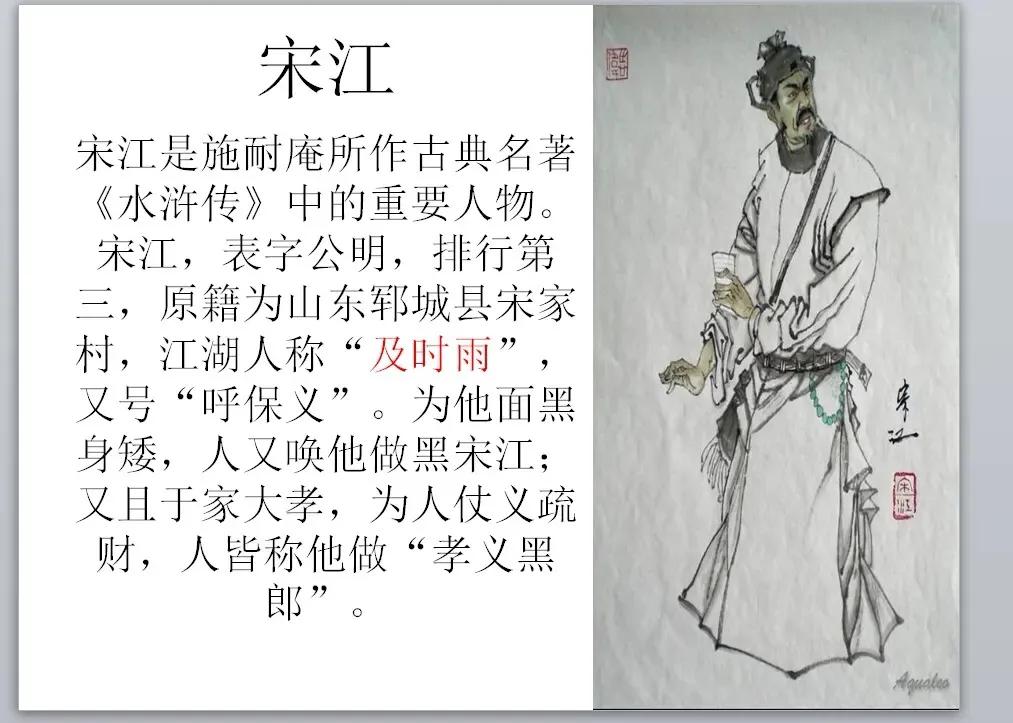 宋江
宋江是施耐庵所作古典名著
《水浒传》中的重要人物。
宋江，表字公明，排行第
三，原籍为山东郓城县宋家
村，江湖人称“及时雨”，
又号“呼保义”。为他面黑
身矮，人又唤他做黑宋江；
又且于家大孝，为人仗义疏
财，人皆称他做“孝义黑
郎”。
宋
江
宋
江
Aqualeo